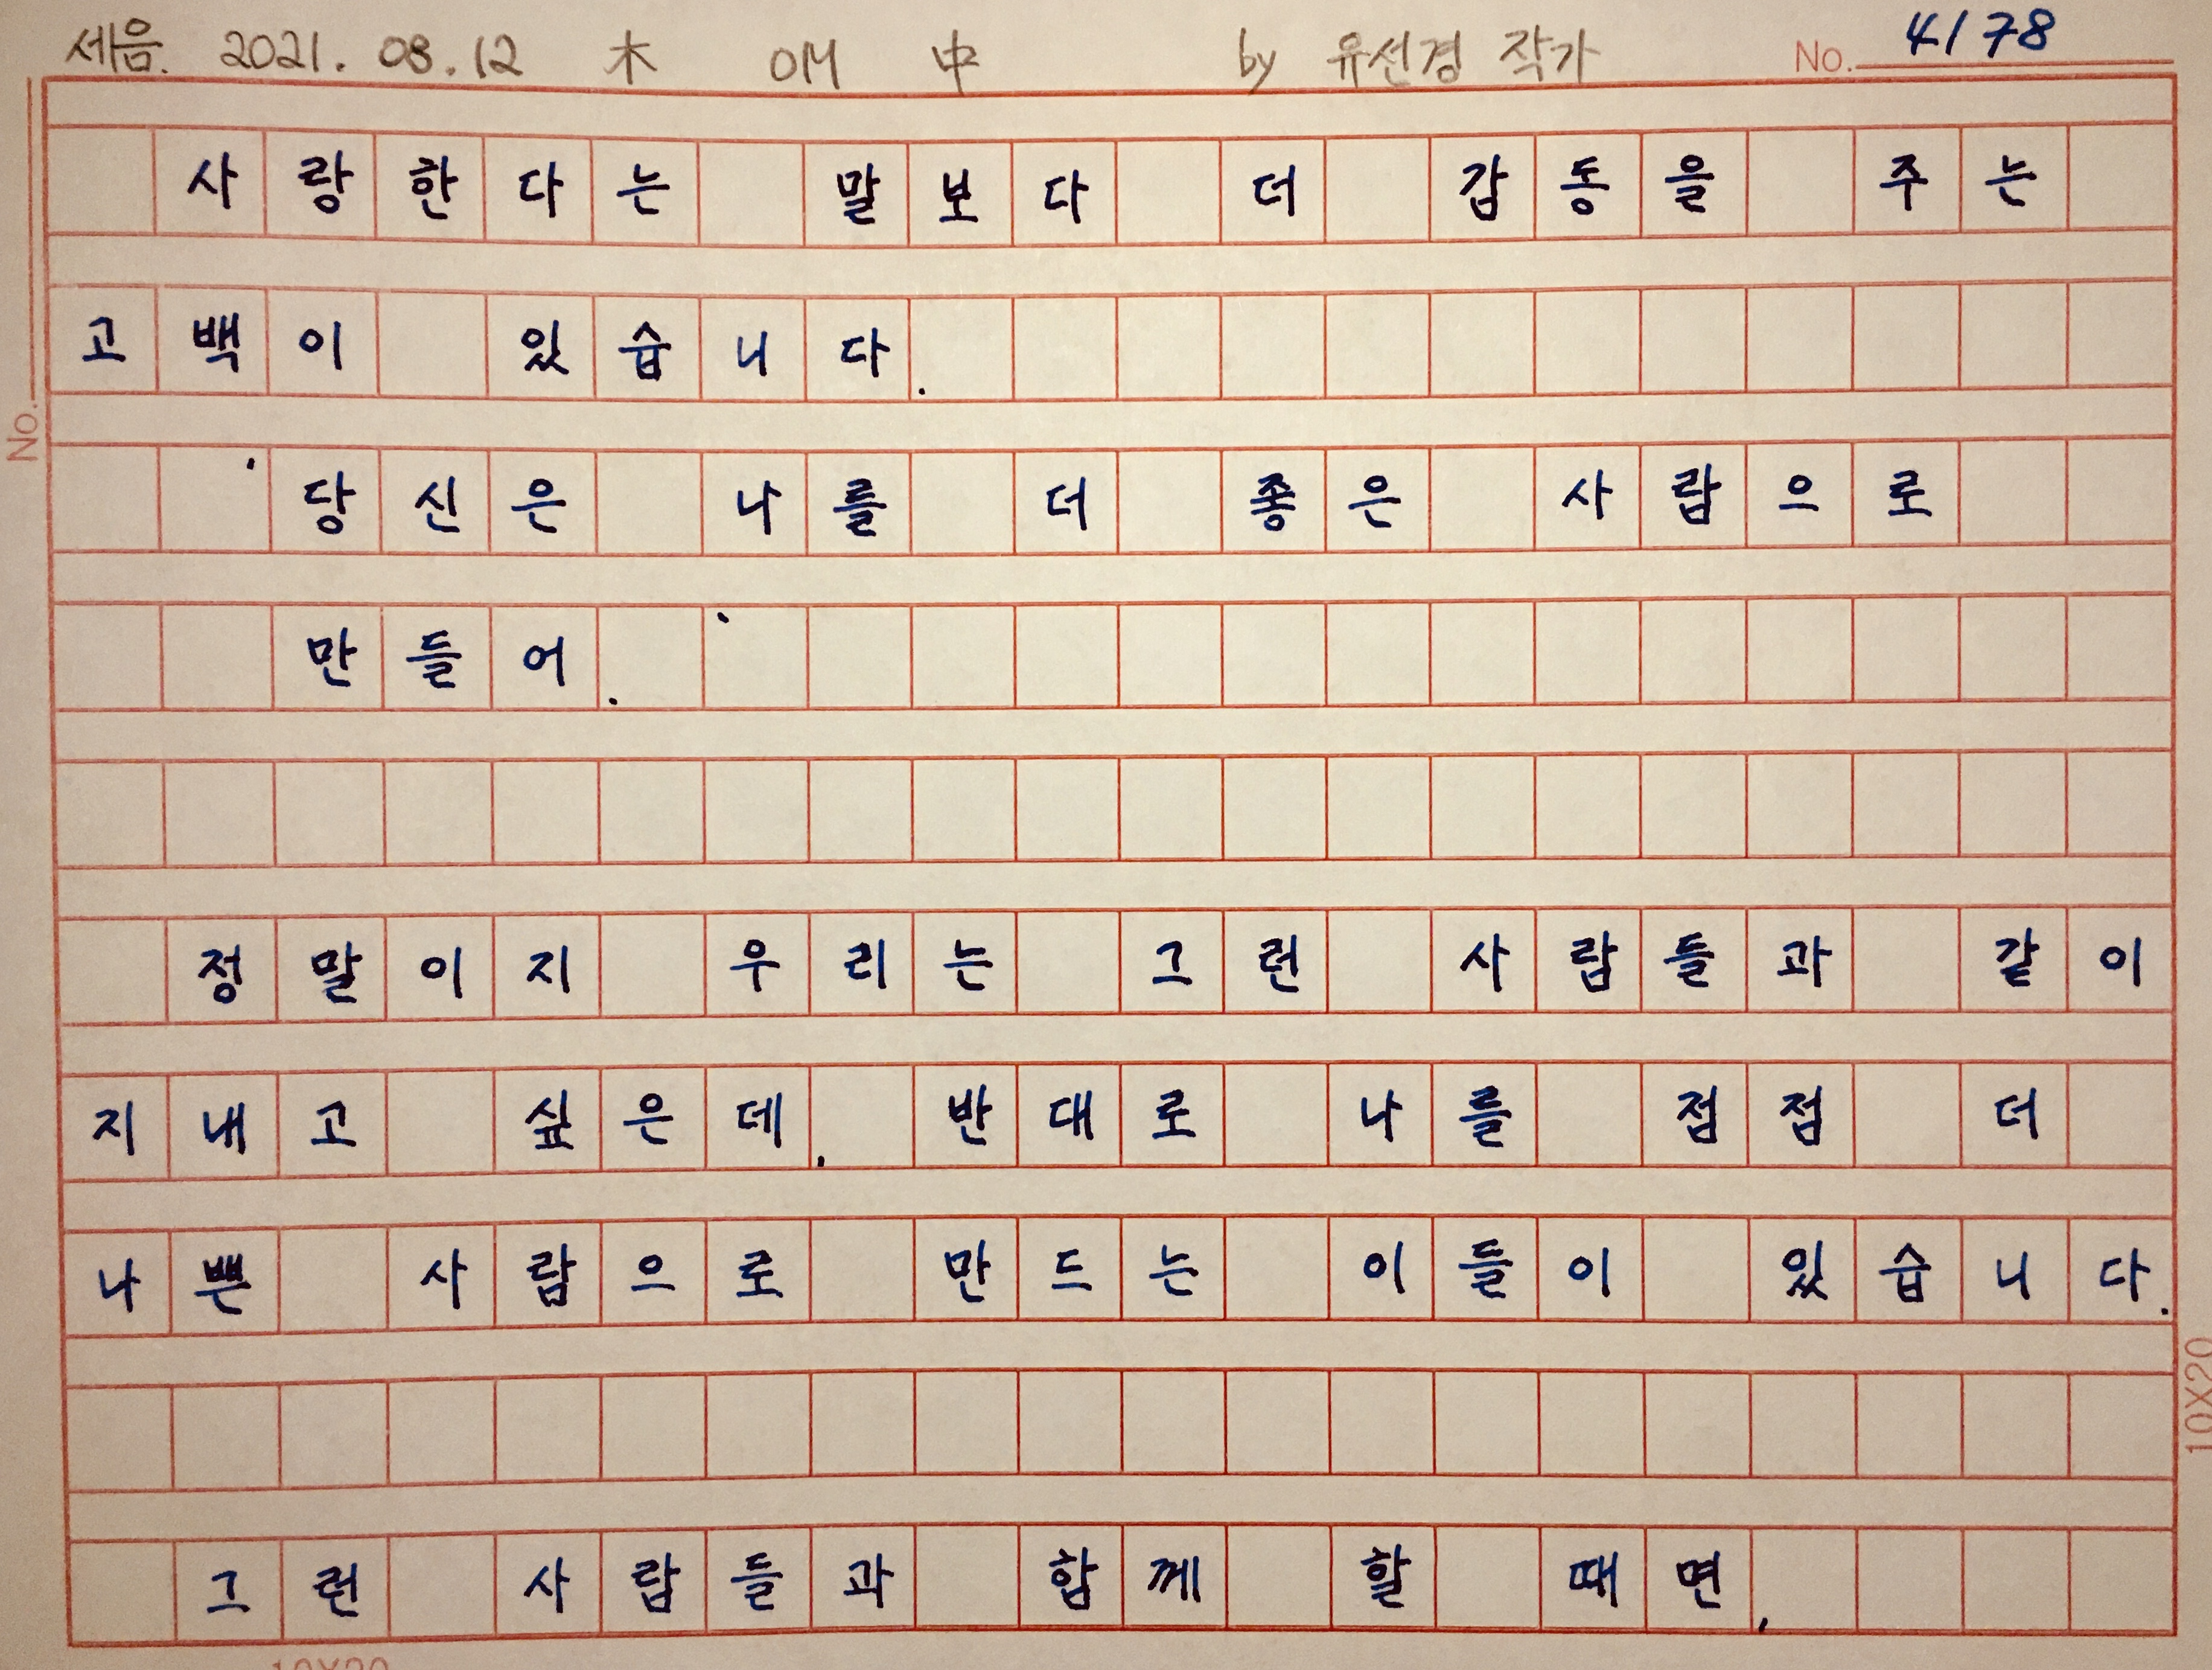 세음. 2021. 08. 12 木 OM 中 by 유선경 작가 No. 4178
사랑한다는 말보다 더 감동을 주는
고백이 있습니다.
'당신은 나를 더 좋은 사람으로
만들어.'
정말이지 우리는 그런 사람들과 같이
지내고 싶은데, 반대로 나를 점점 더
나쁜 사람으로 만드는 이들이 있습니다.
그런 사람들과 함께 할 때면,
No.
10X20